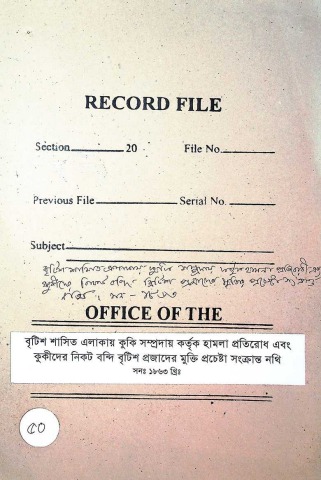 RECORD FILE
Section 20 File No.
Previous File Serial No.
Subject
বৃটিশ শাসিত এলাকায় কুকি সম্প্রদায় কর্তৃক হামলা প্রতিরোধ এবং
কুকীদের নিকট বন্দি বৃটিশ প্রজাদের মুক্তি প্রচেষ্টা সংক্রান্ত
নথি। সন- ১৮৬৩
OFFICE OF THE
বৃটিশ শাসিত এলাকায় কুকি সম্প্রদায় কর্তৃক হামলা প্রতিরোধ এবং
কুকীদের নিকট বন্দি বৃটিশ প্রজাদের মুক্তি প্রচেষ্টা সংক্রান্ত নথি
সনঃ ১৮৬৩ খ্রিঃ
৫০